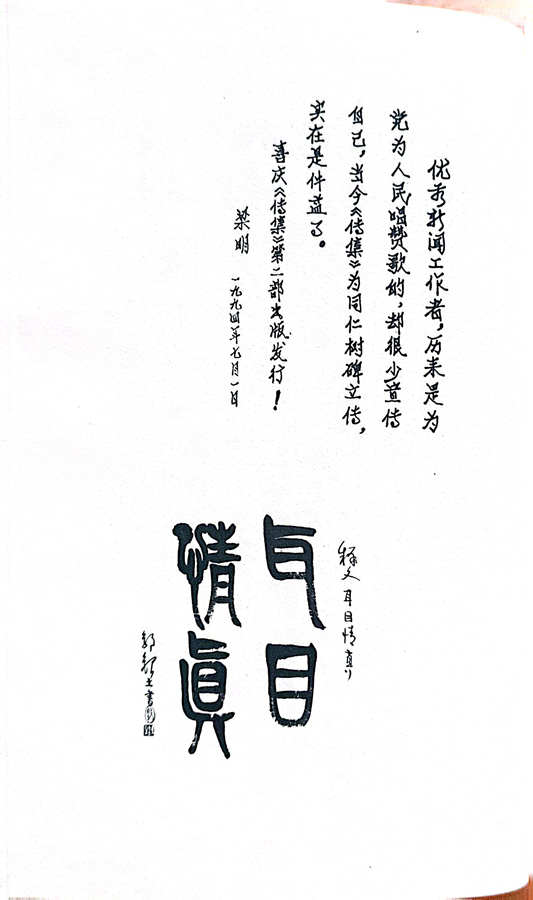 优秀新闻工作者，历来是为
党为人民唱赞歌的，却很少宣传
自己，当今《传集》为同仁树碑立传，
实在是件益了。
喜庆《传集》第二部出版发行！
梁明 一九九四年七月一日
释文 耳目情真
耳目
情真